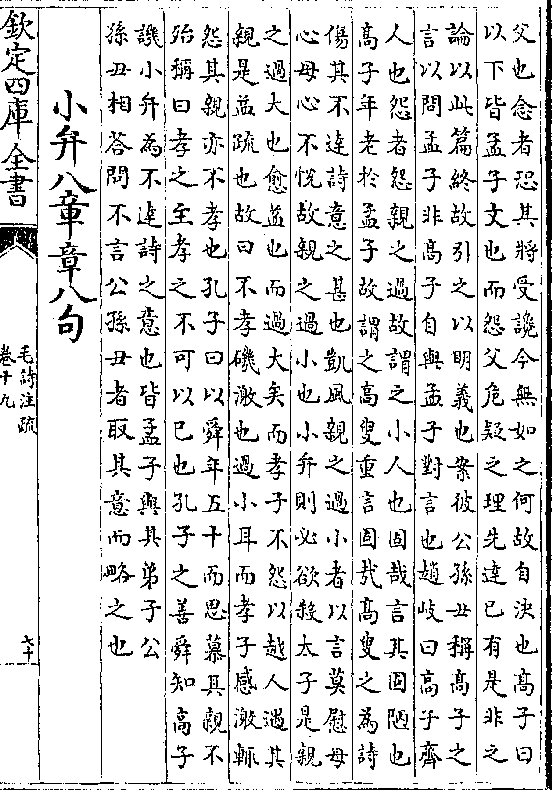 父也念者恐其將受讒今無如之何故自決也髙子曰
以下皆孟子文也而怨父危疑之理先達已有是非之
論以此篇終故引之以明義也案彼公孫丑稱髙子之
言以問孟子非髙子自與孟子對言也趙岐曰髙子齊
人也怨者怨親之過故謂之小人也固哉言其固陋也
髙子年老於孟子故謂之高叟重言固哉髙叟之為詩
傷其不達詩意之甚也凱風親之過小者以言莫慰母
心母心不恱故親之過小也小弁則必欲殺太子是親
之過大也愈益也而過大矣而孝子不怨以越人遇其
親是益疏也故曰不孝磯激也過小耳而孝子感激輒
怨其親亦不孝也孔子曰以舜年五十而思慕其親不
殆稱曰孝之至孝之不可以已也孔子之善舜知高子
譏小弁為不達詩之意也皆孟子與其弟子公
孫丑相答問不言公孫丑者取其意而略之也
小弁八章章八句
欽定四庫全書
毛詩注疏
卷十九
六十